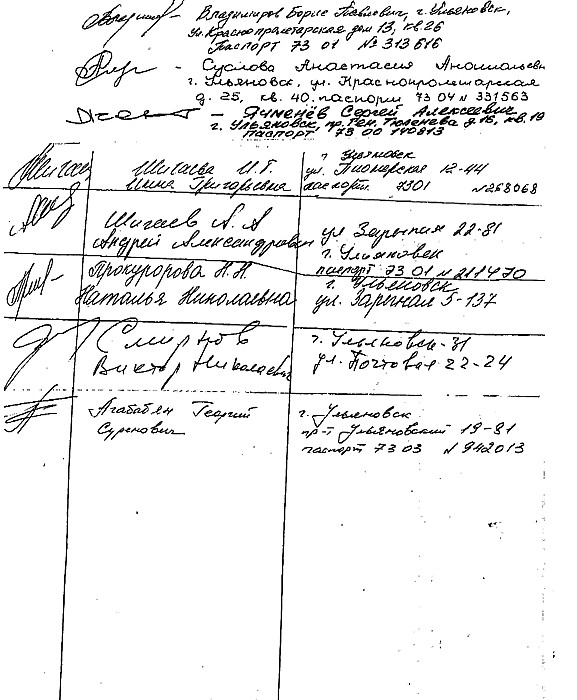 Владимиров Борис Павлович, г. Ульяновск,
ул. Краснопролетарская дом 13, кв. 26
Паспорт 73 01 № 313616
Суслова Анастасия Анатольевн
г. Ульяновск, ул. Краснопролетарская
д. 25, кв. 40. паспорт 73 04 № 331563
Ячменёв Сергей Алексеевич
г. Ульяновск, пр. Ген. Тюленева д 16, кв. 19
Паспорт 73 00 140813
Шигаева И. Г. г Ульяновск
Инна Григорьевна ул. Пионерская 12-44
паспорт 7301 № 268068
Шигаев А. А ул Зарытая 22-81
Андрей Александрович г. Ульяновск
Прокуророва Н. Н. паспорт 73 01 № 211470
г. Ульяновск
Наталья Николаевна ул. Заречная 5-137
Смирнов г. Ульяновск-31
Виктор Николаевич ул. Почтовая 22-24
Агабабян Георгий г. Ульяновск
Суренович пр-т Ульяновский 19-81
паспорт 73 03 № 942013